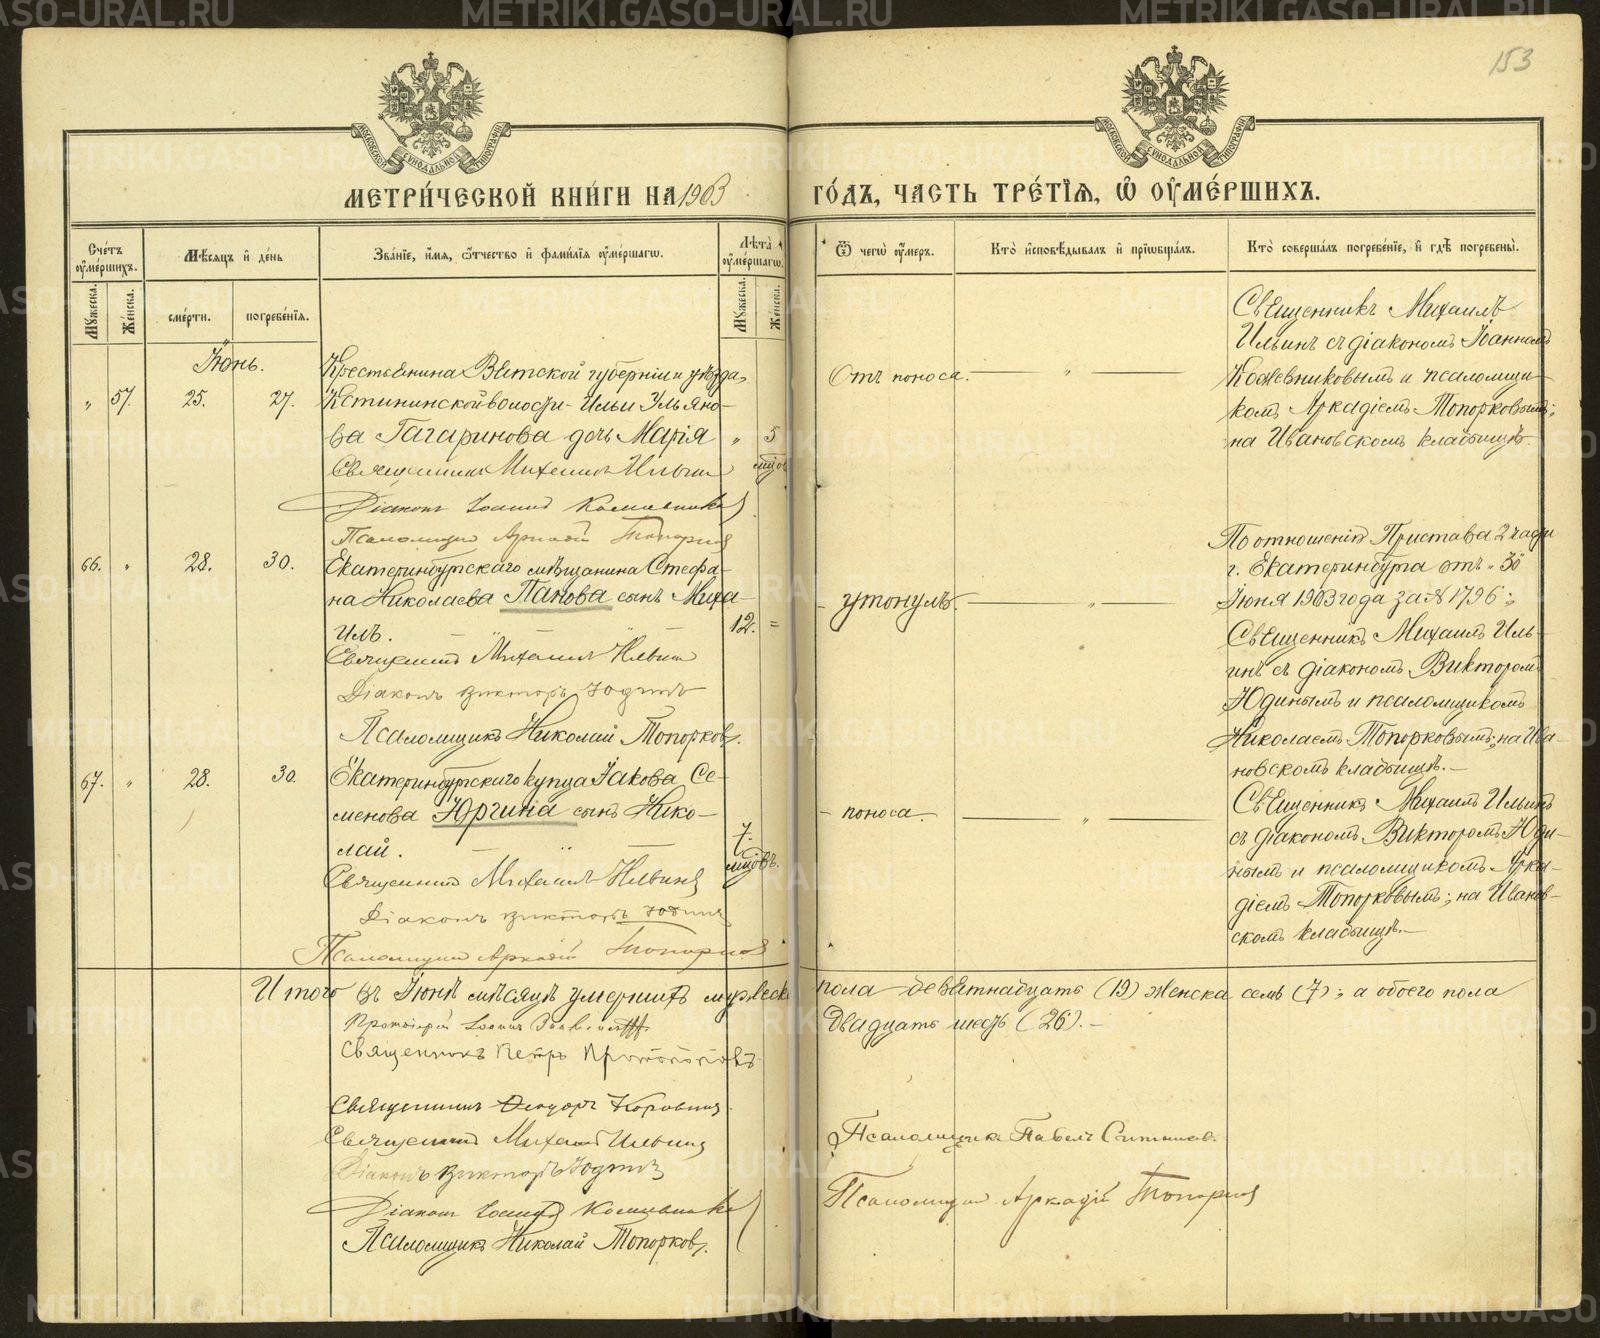 153
МОСКОВСКОЙ СѴНОДАЛЬНОЙ ТИПОГРАФІИ
МОСКОВСКОЙ СѴНОДАЛЬНОЙ ТИПОГРАФІИ
МЕТРИ́ЧЕСКОЙ КНИ́ГИ НА 1903
ГО́ДЪ, ЧАСТЬ ТРЕ́ТІѦ, Ѡ ОУМЕ́РШИХЪ.
Сче́тъ оуме́ршихъ.
Мꙋжеска.
Же́нска.
Мѣ́сѧцъ и де́нь
сме́рти.
погребе́нїѧ.
Зва́нїе, и́мѧ, ѻ́тчество и фами́лїѧ оуме́ршагѡ.
Лѣ́та оуме́ршагѡ.
Мꙋжеска.
Же́нска.
Ѿ чегѡ̀ оу́меръ.
Кто̀ исповѣ́дывалъ и прїѡбща́лъ.
Кто̀ соверша́лъ погребе́нїе, и гдѣ̀ погребены̀.
Іюнь.
" 57. 25. 27.
Крестьянина Вятской губерніи и уѣзда,
Кстининской волости Ильи Ульяно-
ва Гагаринова дочь Марія " 5 мцов
Священникъ Михаилъ Ильин
Діаконъ Іоаннъ Кожевников
Псаломщик Аркадій Топорков
Отъ поноса. "
Священникъ Михаилъ
Ильинъ съ діакономъ Іоанномъ
Кожевниковымъ и псаломщи-
комъ Аркадіемъ Топорковымъ;
на Ивановскомъ кладбищѣ.
66. " 28. 30.
Екатеринбургскаго мѣщанина Стефа-
на Николаева Панова сынъ Миха-
илъ. 12. =
Священникъ Михаилъ Ильин
Діаконъ Викторъ Юдинъ
Псаломщикъ Николай Топорков.
утонулъ. "
По отношенію Пристава 2 части
г. Екатеринбурга отъ 30
Іюня 1903 года за № 1796;
Священникъ Михаилъ Иль-
инъ съ діакономъ Викторомъ
Юдинымъ и псаломщикомъ
Николаемъ Топорковымъ; на Ива-
новскомъ кладбищѣ.-
67. " 28. 30.
Екатеринбургскаго купца Іакова Се-
менова Юргина сынъ Нико-
лай. 7. мцовъ.
Священник Михаилъ Ильинъ
Діаконъ Викторъ Юдинъ
Псаломщик Аркадій Топорков
поноса. "
Священникъ Михаилъ Ильинъ
съ діакономъ Викторомъ Юди-
нымъ и псаломщикомъ Арка-
діемъ Топорковымъ; на Иванов-
скомъ кладбищѣ.-
Итого въ Іюнѣ мѣсяцѣ умершихъ мужеска пола девятнадцать (19) женска семь (7); а обоего пола
двадцать шесть (26).-
Протоіерей Іоаннъ
Священникъ Петръ Протопоповъ
Священникъ Феодоръ Коровинъ
Священник Михаил Ильинъ
Діаконъ Викторъ Юдинъ
Діаконъ Іоаннъ Кожевников
Псаломщикъ Николай Топорков.
Псаломщикъ Павелъ
Псаломщик Аркадій Топорков
METRIKI.GASO-URAL.RU